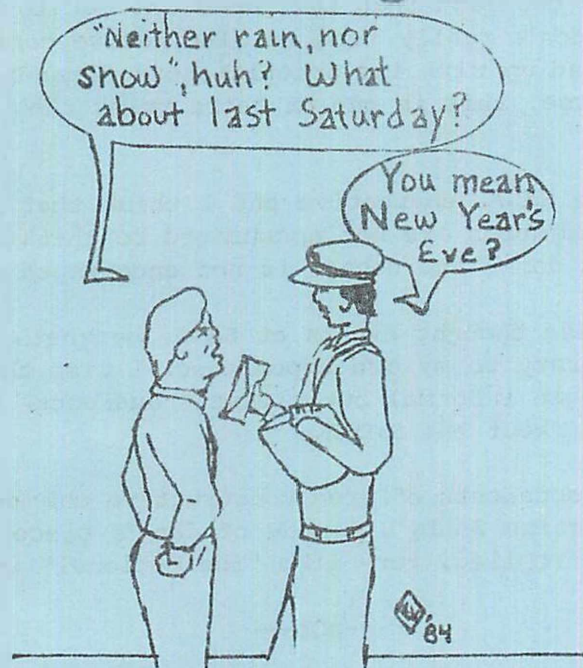 "Neither rain, nor
snow", huh? What
about last Saturday?
You mean
New Year's
Eve?
'84